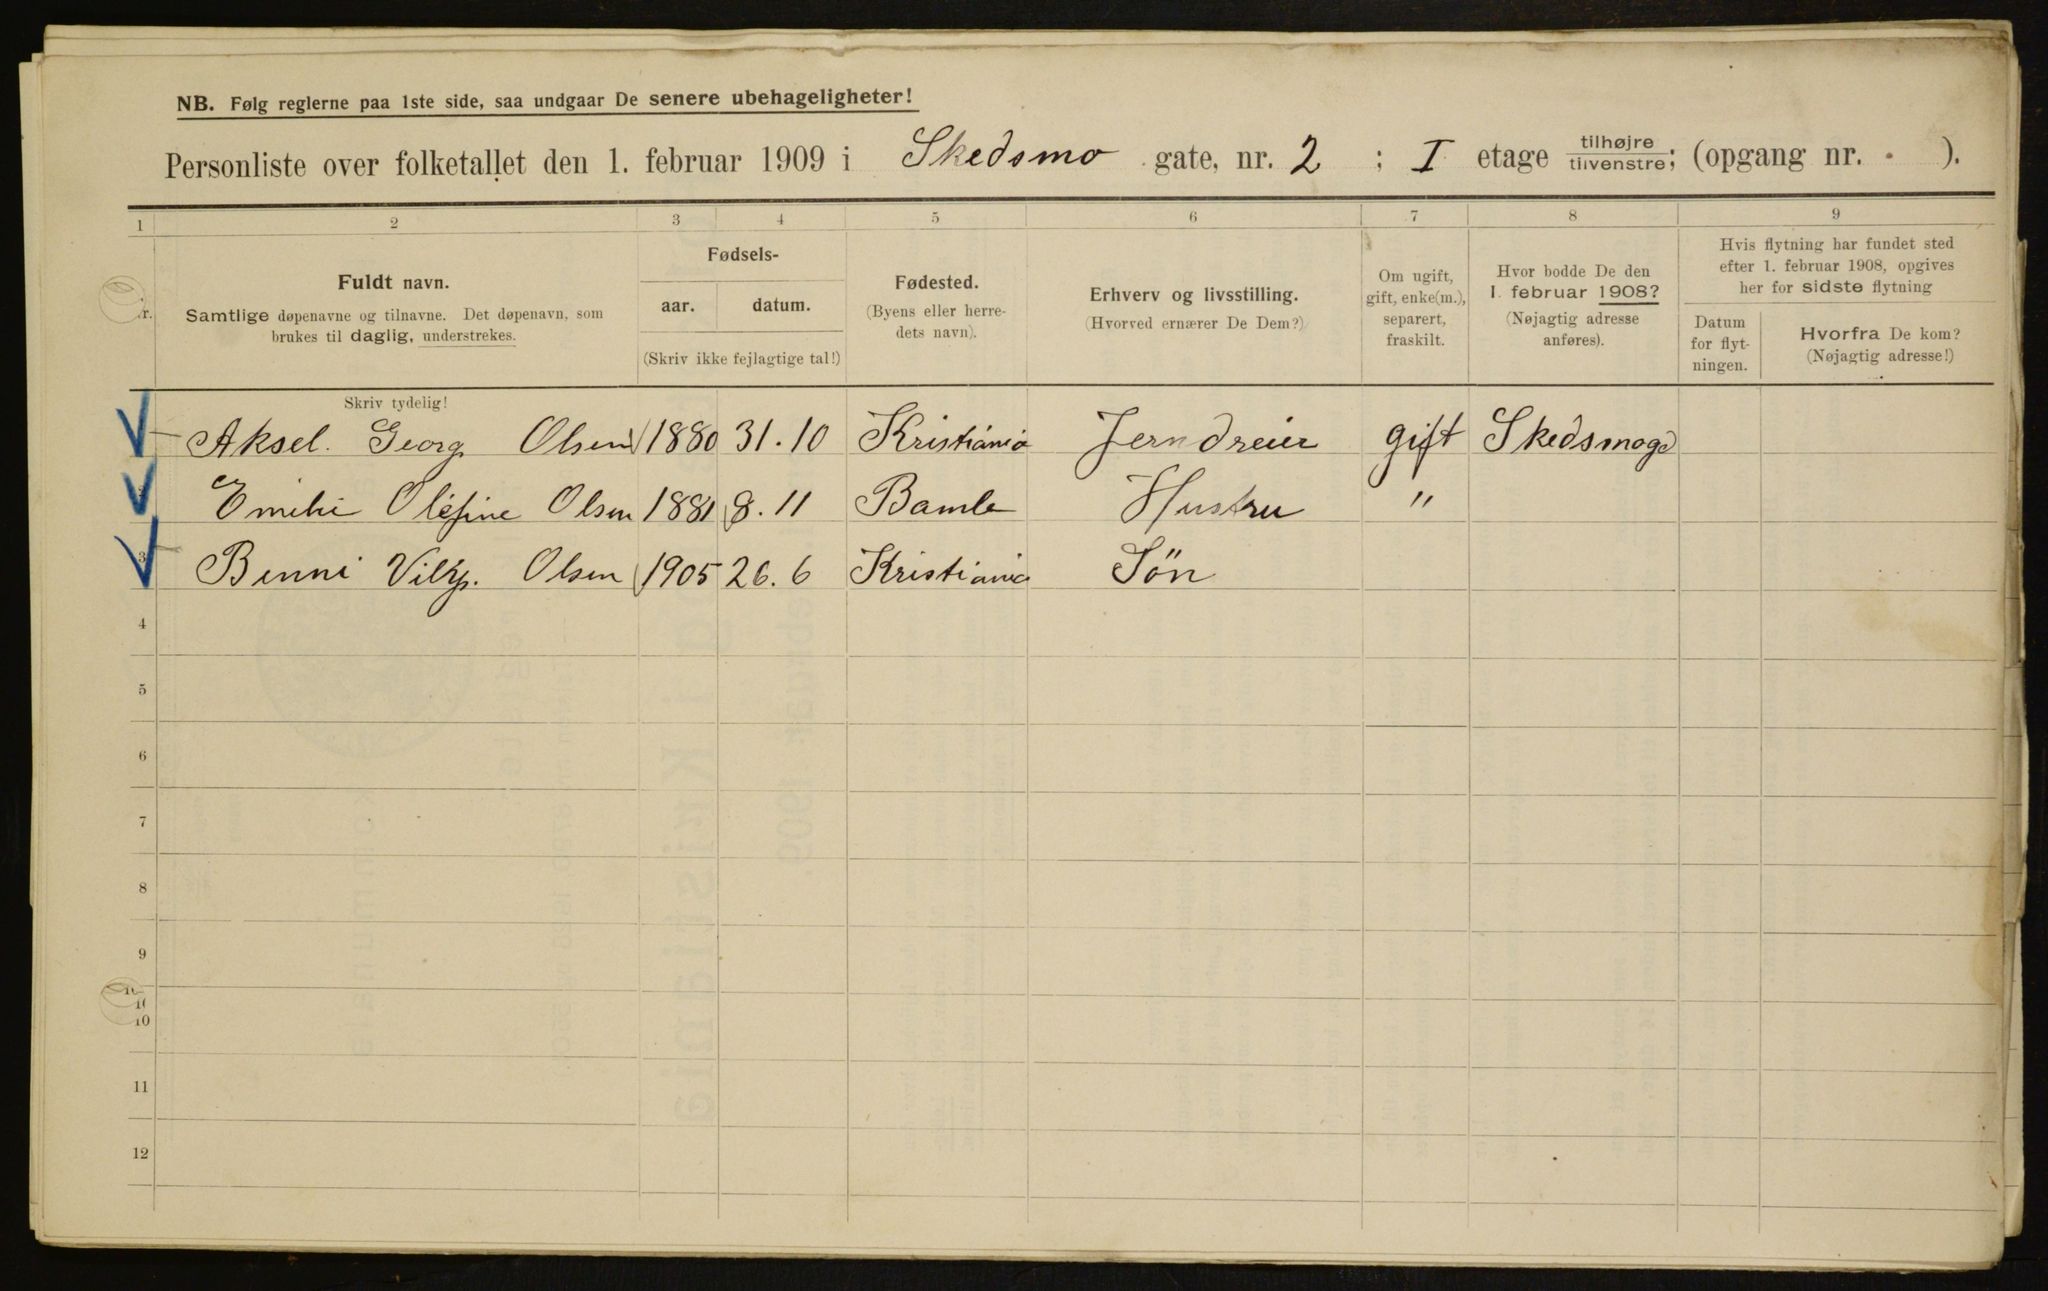 NB. Følg reglerne paa 1ste side, saa undgaar De senere ubehageligheter!
Personliste over folketallet den 1. februar 1909 i Skedsmo gate, nr. 2 ; I etage tilhøjre / tilvenstre; (opgang nr. ).
1 2 3 4 5 6 7 8 9
Fuldt navn.
Samtlige døpenavne og tilnavne. Det døpenavn, som
brukes til daglig, understrekes.
Fødsels-
aar. datum.
(Skriv ikke fejlagtige tal!)
Fødested.
(Byens eller herre-
dets navn).
Erhverv og livsstilling.
(Hvorved ernærer De Dem?)
Om ugift,
gift, enke(m.),
separert,
fraskilt.
Hvor bodde De den
1. februar 1908?
(Nøjagtig adresse
anføres).
Hvis flytning har fundet sted
efter 1. februar 1908, opgives
her for sidste flytning
Datum
for flyt-
ningen.
Hvorfra De kom?
(Nøjagtig adresse!)
Skriv tydelig!
Aksel. Georg Olsen 1880 31.10 Kristiania Jerndreier gift Skedsmogd
Emilie Olefine Olsen 1881 8.11 Bamle Hustru "
3 Benni Vilh. Olsen 1905 26.6 Kristiania Søn
4
5
6
7
8
9
10
11
12